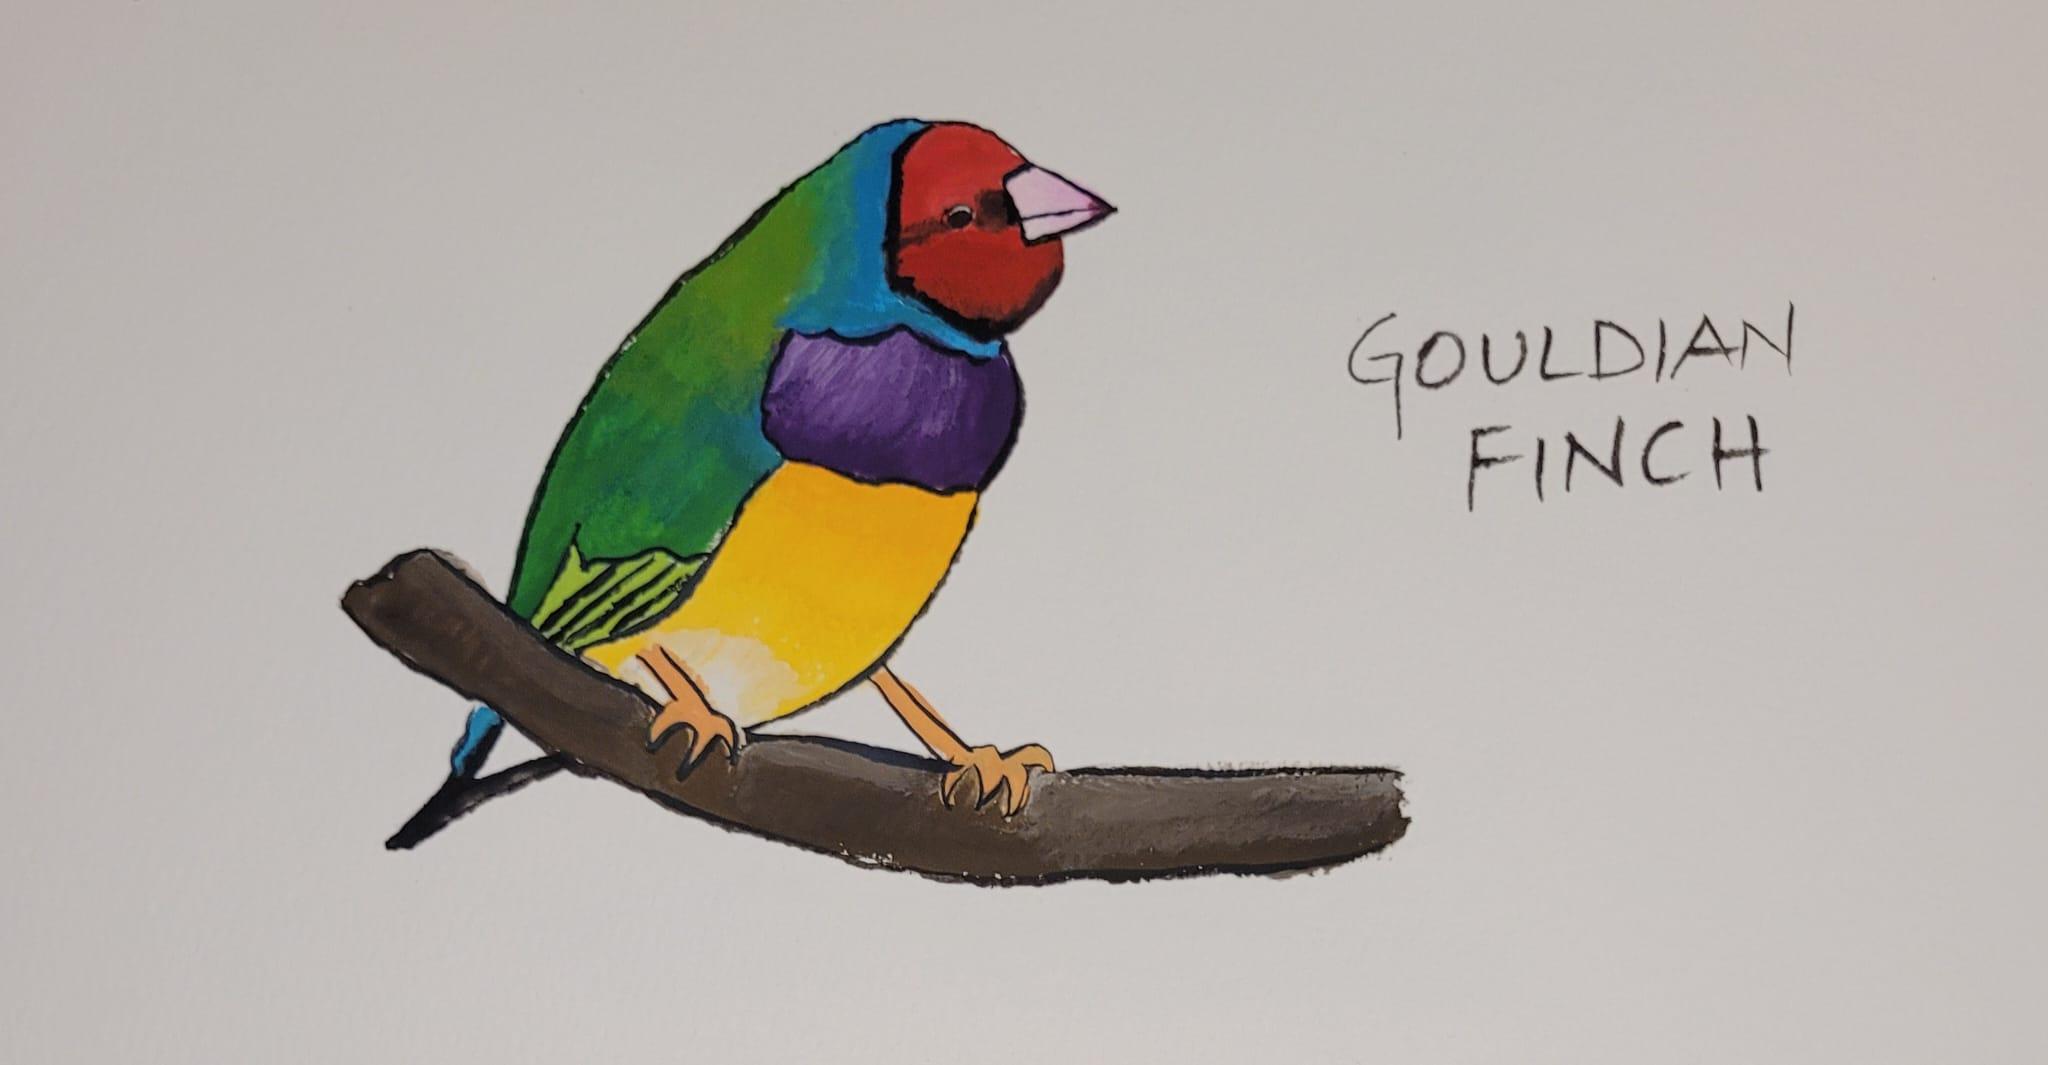 GOULDIAN
FINCH